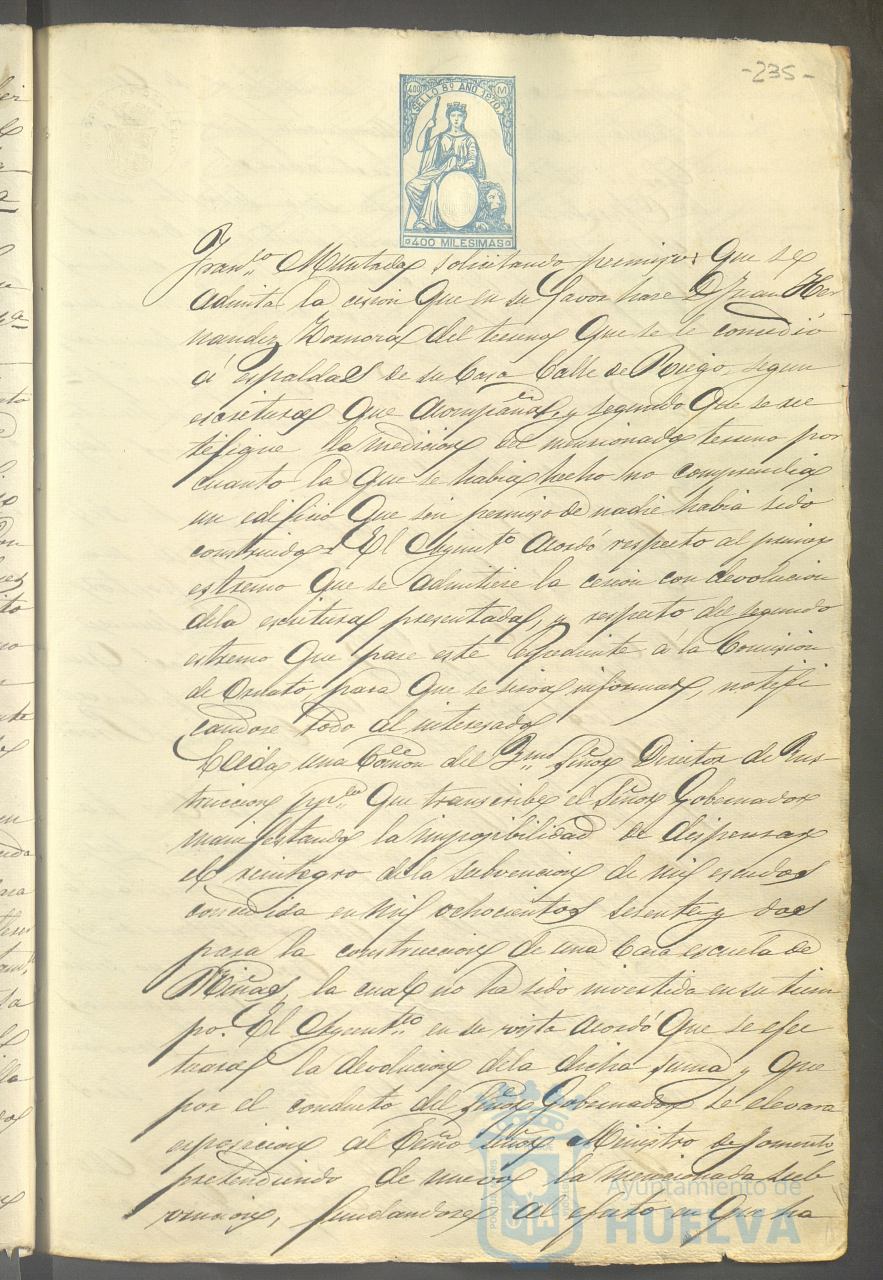 -235-
400 M
SELLO 8º AÑO 1870
400 MILESIMAS
Franco Muntada solicitando permiso: Que se
admita la cesion Que en su favor hace D Juan Her
nandez del terreno Que se le concedió
á espaldas de su Casa Calle de Riego, segun
escritura Que acompaña, y segundo Que se rec
tifique la medicion del mensionado terreno por
cuanto la que se habia hecho no comprendia
un edificio Que sin permiso de nadie habia sido
construido. El Ayuntto acordó respecto al primer
estremo Que se admitiese la cesion con devolucion
dela escritura presentada, y respecto del segundo
estremo Que pase este Espediente á la Comision
de Ornato, para Que se sirva informar, notifi
candose todo al interesado
Leida una Comon del Señor Director de Ins-
truccion Que transcribe el Señor Gobernador
manifestando la imposibilidad de dispensar
el reintegro dela subvencion de mil escudos
concedida en mil ochocientos sesenta y dos
para la construccion de una Casa escuela de
Niñas, la cual no ha sido invertida en su tiem
po. El Ayuntto en su vista acordó Que se efec
tuara la devolucion dela dicha suma y Que
por el conducto del Señor Gobernador se elevara
esposicion al Señor Ministro de Fomento,
pretendiendo de nuevo la mensionada sub
vencion, fundandose al efecto en Que ha
Ayuntamiento de
HUELVA